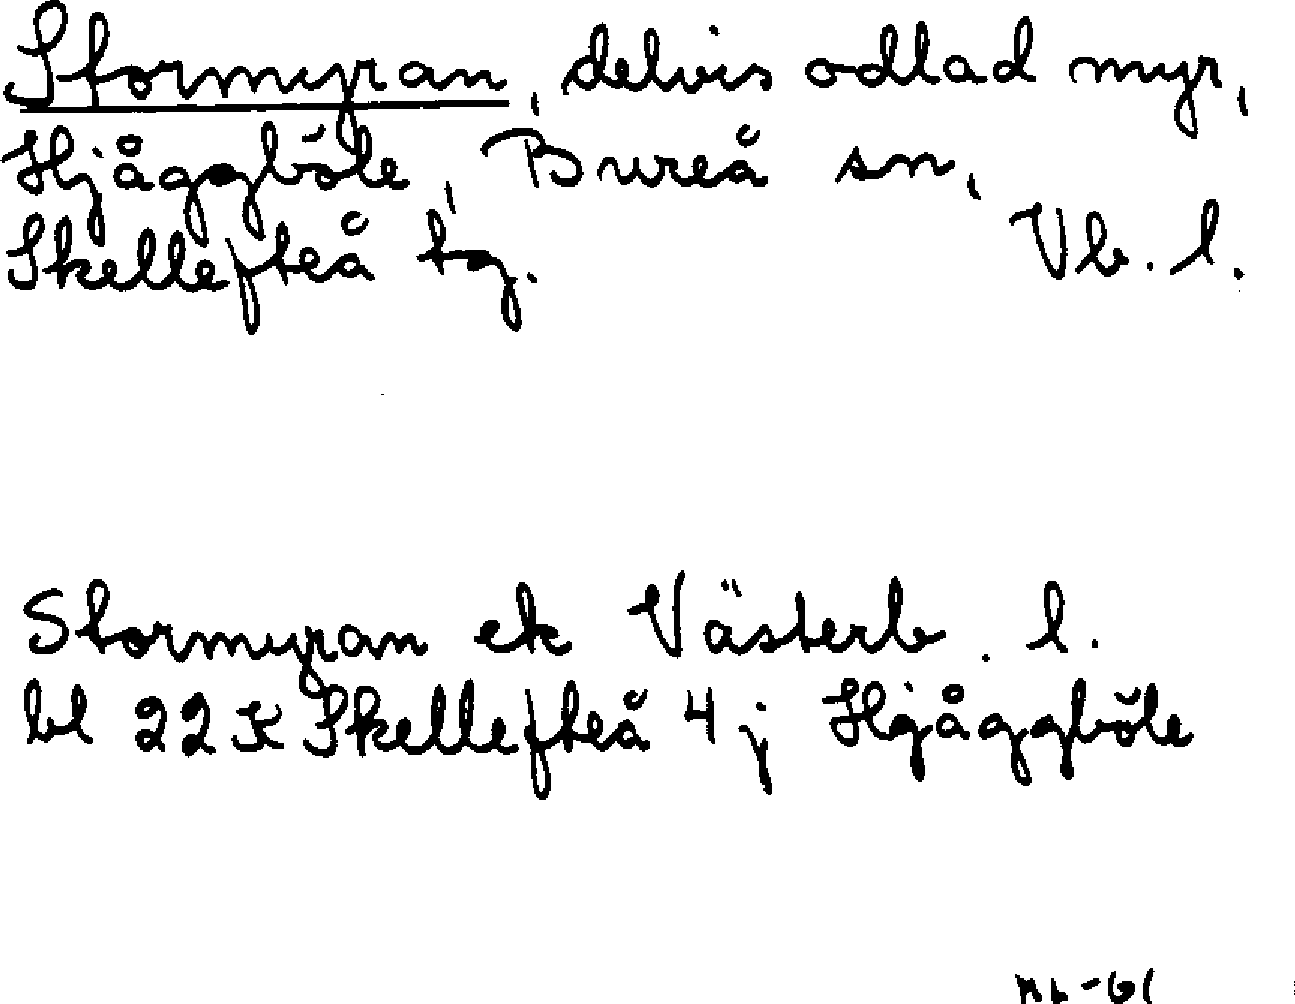 Stormyran, delvis odlad myr,
Hjåggböle, Bureå sn,
Skellefteå tg. Vb. l.
Stormyran ek Västerb. l.
bl 22K Skellefteå 4j Hjåggböle